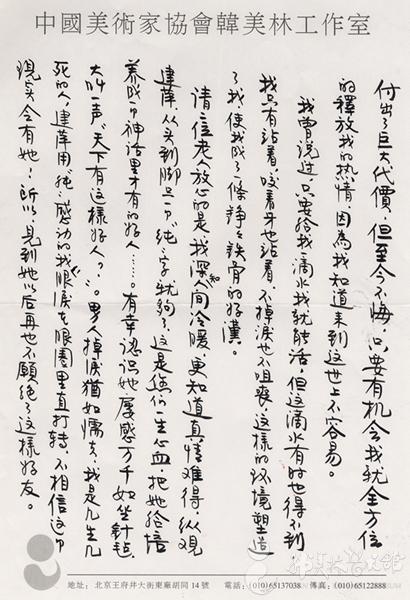 中國美術家協會韓美林工作室
付出了巨大代價，但至今不悔，只要有机会我就全方位
的釋放我的热情，因為我知道来到这世上不容易。
我曾说过，只要给我一滴水我就能活，但这滴水有时也得不到，
我只有站着，咬着牙也站着，不掉淚也不咀喪，这樣的环境塑造
了我，使我成了一條錚々鉄骨的好漢。
请二位老人放心的是，我深知人间冷暖，更知道真情难得，纵观
建萍，从头到脚只一个“纯”字就夠了，这是您们一生心血，把她给培
养成一个神话里才有的好人……。有幸認识她屡感万千如坐針毡，
大叫一声“天下有这樣好人？”。男人掉淚猶如懦夫，我是几生几
死的人，建萍用“純”感动的我眼淚在眼圈里直打转，不相信这个
現实会有她！所以，見到她以后再也不願絕了这樣好友。
地址：北京王府井大街東廠胡同 14 號 電話：(010)65137038 傳真：(010)65122888